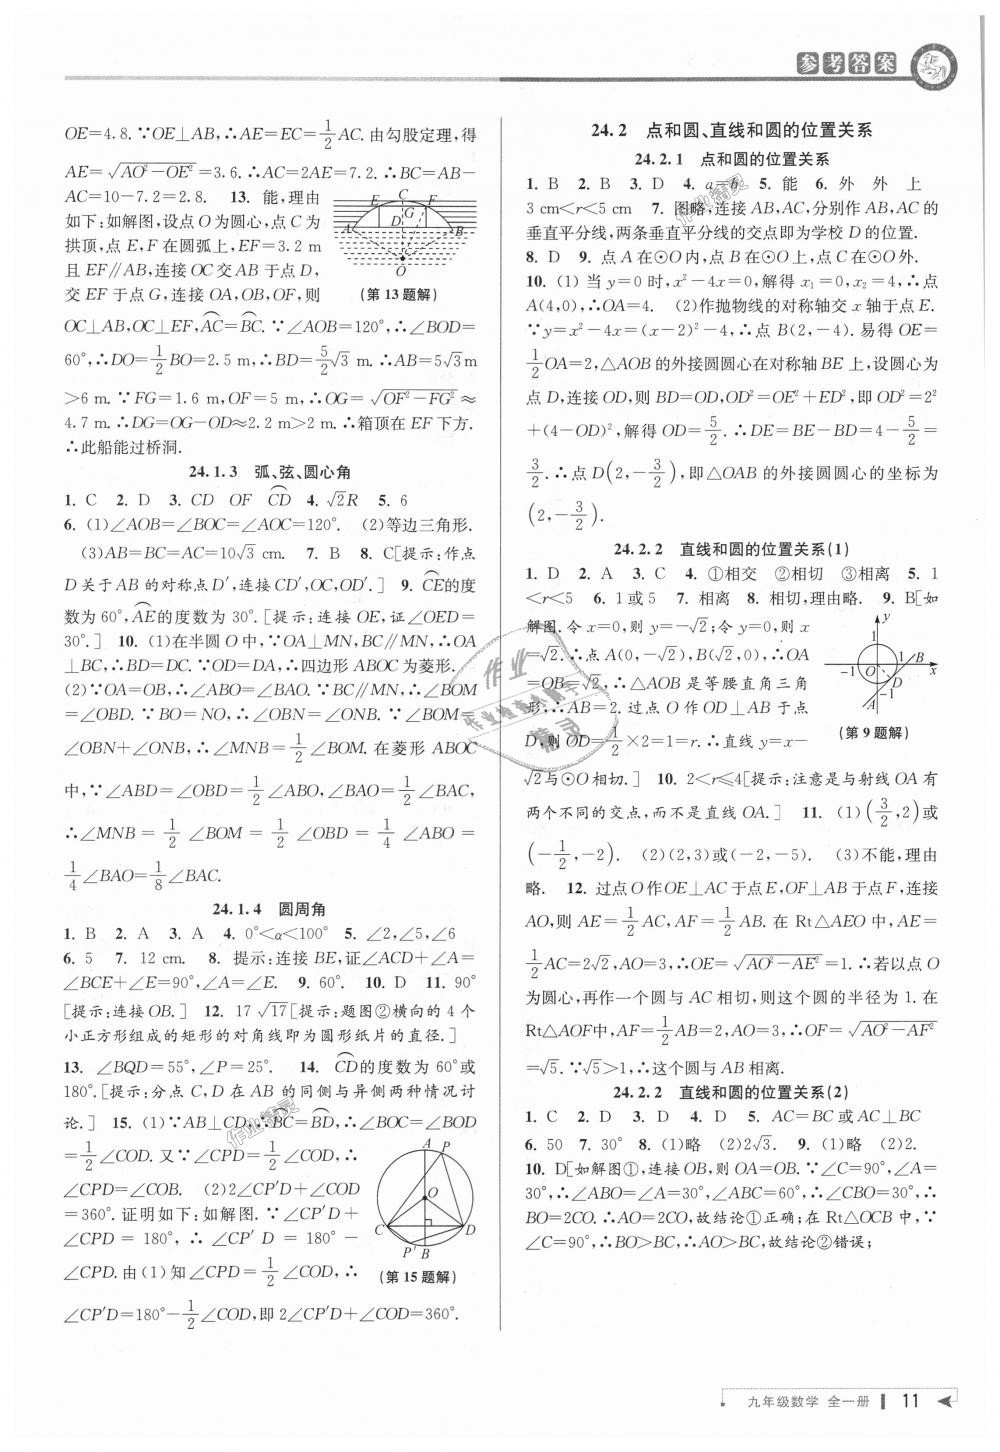 参考答案
OE=4.8.∵OE⊥AB,∴AE=EC=1/2AC.由勾股定理,得
AE=√(AO²-OE²)=3.6.∴AC=2AE=7.2.∴BC=AB-
AC=10-7.2=2.8. 13. 能,理由
如下:如解图,设点O为圆心,点C为
拱顶,点E,F在圆弧上,EF=3.2 m
且EF∥AB,连接OC交AB于点D,
交EF于点G,连接OA,OB,OF,则
E C F
G
A D B
O
(第13题解)
OC⊥AB,OC⊥EF,AC⌒=BC⌒.∵∠AOB=120°,∴∠BOD=
60°,∴DO=1/2BO=2.5 m,∴BD=5/2√3 m.∴AB=5√3 m
>6 m.∵FG=1.6 m,OF=5 m,∴OG=√(OF²-FG²)≈
4.7 m.∴DG=OG-OD≈2.2 m>2 m.∴箱顶在EF下方.
∴此船能过桥洞.
24.1.3 弧、弦、圆心角
1. C 2. D 3. CD OF CD⌒ 4. √2R 5. 6
6. (1)∠AOB=∠BOC=∠AOC=120°. (2)等边三角形.
(3)AB=BC=AC=10√3 cm. 7. B 8. C[提示:作点
D关于AB的对称点D′,连接CD′,OC,OD′.] 9. CE⌒的度
数为60°,AE⌒的度数为30°.[提示:连接OE,证∠OED=
30°.] 10. (1)在半圆O中,∵OA⊥MN,BC∥MN,∴OA
⊥BC,∴BD=DC.∵OD=DA,∴四边形ABOC为菱形.
(2)∵OA=OB,∴∠ABO=∠BAO.∵BC∥MN,∴∠BOM
=∠OBD.∵BO=NO,∴∠OBN=∠ONB.∵∠BOM=
∠OBN+∠ONB,∴∠MNB=1/2∠BOM.在菱形ABOC
中,∵∠ABD=∠OBD=1/2∠ABO,∠BAO=1/2∠BAC,
∴∠MNB=1/2∠BOM=1/2∠OBD=1/4∠ABO=
1/4∠BAO=1/8∠BAC.
24.1.4 圆周角
1. B 2. A 3. A 4. 0°<α<100° 5. ∠2,∠5,∠6
6. 5 7. 12 cm. 8. 提示:连接BE,证∠ACD+∠A=
∠BCE+∠E=90°,∠A=∠E. 9. 60°. 10. D 11. 90°
[提示:连接OB.] 12. 17√17[提示:题图②横向的4个
小正方形组成的矩形的对角线即为圆形纸片的直径.]
13. ∠BQD=55°,∠P=25°. 14. CD⌒的度数为60°或
180°.[提示:分点C,D在AB的同侧与异侧两种情况讨
论.] 15. (1)∵AB⊥CD,∴BC⌒=BD⌒,∴∠BOC=∠BOD
=1/2∠COD.又∵∠CPD=1/2∠COD,∴
∠CPD=∠COB. (2)2∠CP′D+∠COD
=360°.证明如下:如解图.∵∠CP′D+
∠CPD=180°,∴∠CP′D=180°-
∠CPD.由(1)知∠CPD=1/2∠COD,∴
∠CP′D=180°-1/2∠COD,即2∠CP′D+∠COD=360°.
A P
O
C D
P′ B
(第15题解)
24.2 点和圆、直线和圆的位置关系
24.2.1 点和圆的位置关系
1. B 2. B 3. D 4. a=b 5. 能 6. 外 外 上
3 cm<r<5 cm 7. 图略,连接AB,AC,分别作AB,AC的
垂直平分线,两条垂直平分线的交点即为学校D的位置.
8. D 9. 点A在⊙O内,点B在⊙O上,点C在⊙O外.
10. (1)当y=0时,x²-4x=0,解得x₁=0,x₂=4,∴点
A(4,0),∴OA=4. (2)作抛物线的对称轴交x轴于点E.
∵y=x²-4x=(x-2)²-4,∴点B(2,-4).易得OE=
1/2OA=2,△AOB的外接圆圆心在对称轴BE上,设圆心为
点D,连接OD,则BD=OD,OD²=OE²+ED²,即OD²=2²
+(4-OD)²,解得OD=5/2.∴DE=BE-BD=4-5/2=
3/2.∴点D(2,-3/2),即△OAB的外接圆圆心的坐标为
(2,-3/2).
24.2.2 直线和圆的位置关系(1)
1. D 2. A 3. C 4. ①相交 ②相切 ③相离 5. 1
<r<5 6. 1或5 7. 相离 8. 相切,理由略. 9. B[如
解图.令x=0,则y=-√2;令y=0,则x
=√2.∴点A(0,-√2),B(√2,0),∴OA
=OB=√2,∴△AOB是等腰直角三角
形,∴AB=2.过点O作OD⊥AB于点
D,则OD=1/2×2=1=r.∴直线y=x-
y
1
B
-1 O 1 x
D
A -1
(第9题解)
√2与⊙O相切.] 10. 2<r≤4[提示:注意是与射线OA有
两个不同的交点,而不是直线OA.] 11. (1)(3/2,2)或
(-1/2,-2). (2)(2,3)或(-2,-5). (3)不能,理由
略. 12. 过点O作OE⊥AC于点E,OF⊥AB于点F,连接
AO,则AE=1/2AC,AF=1/2AB.在Rt△AEO中,AE=
1/2AC=2√2,AO=3,∴OE=√(AO²-AE²)=1.∴若以点O
为圆心,再作一个圆与AC相切,则这个圆的半径为1.在
Rt△AOF中,AF=1/2AB=2,AO=3,∴OF=√(AO²-AF²)
=√5.∵√5>1,∴这个圆与AB相离.
24.2.2 直线和圆的位置关系(2)
1. C 2. D 3. D 4. D 5. AC=BC或AC⊥BC
6. 50 7. 30° 8. (1)略 (2)2√3. 9. (1)略 (2)2.
10. D[如解图①,连接OB,则OA=OB.∵∠C=90°,∠A=
30°,∴∠ABO=∠A=30°,∠ABC=60°,∴∠CBO=30°,∴
BO=2CO.∴AO=2CO,故结论①正确;在Rt△OCB中,∵
∠C=90°,∴BO>BC,∴AO>BC,故结论②错误;
九年级数学 全一册 11